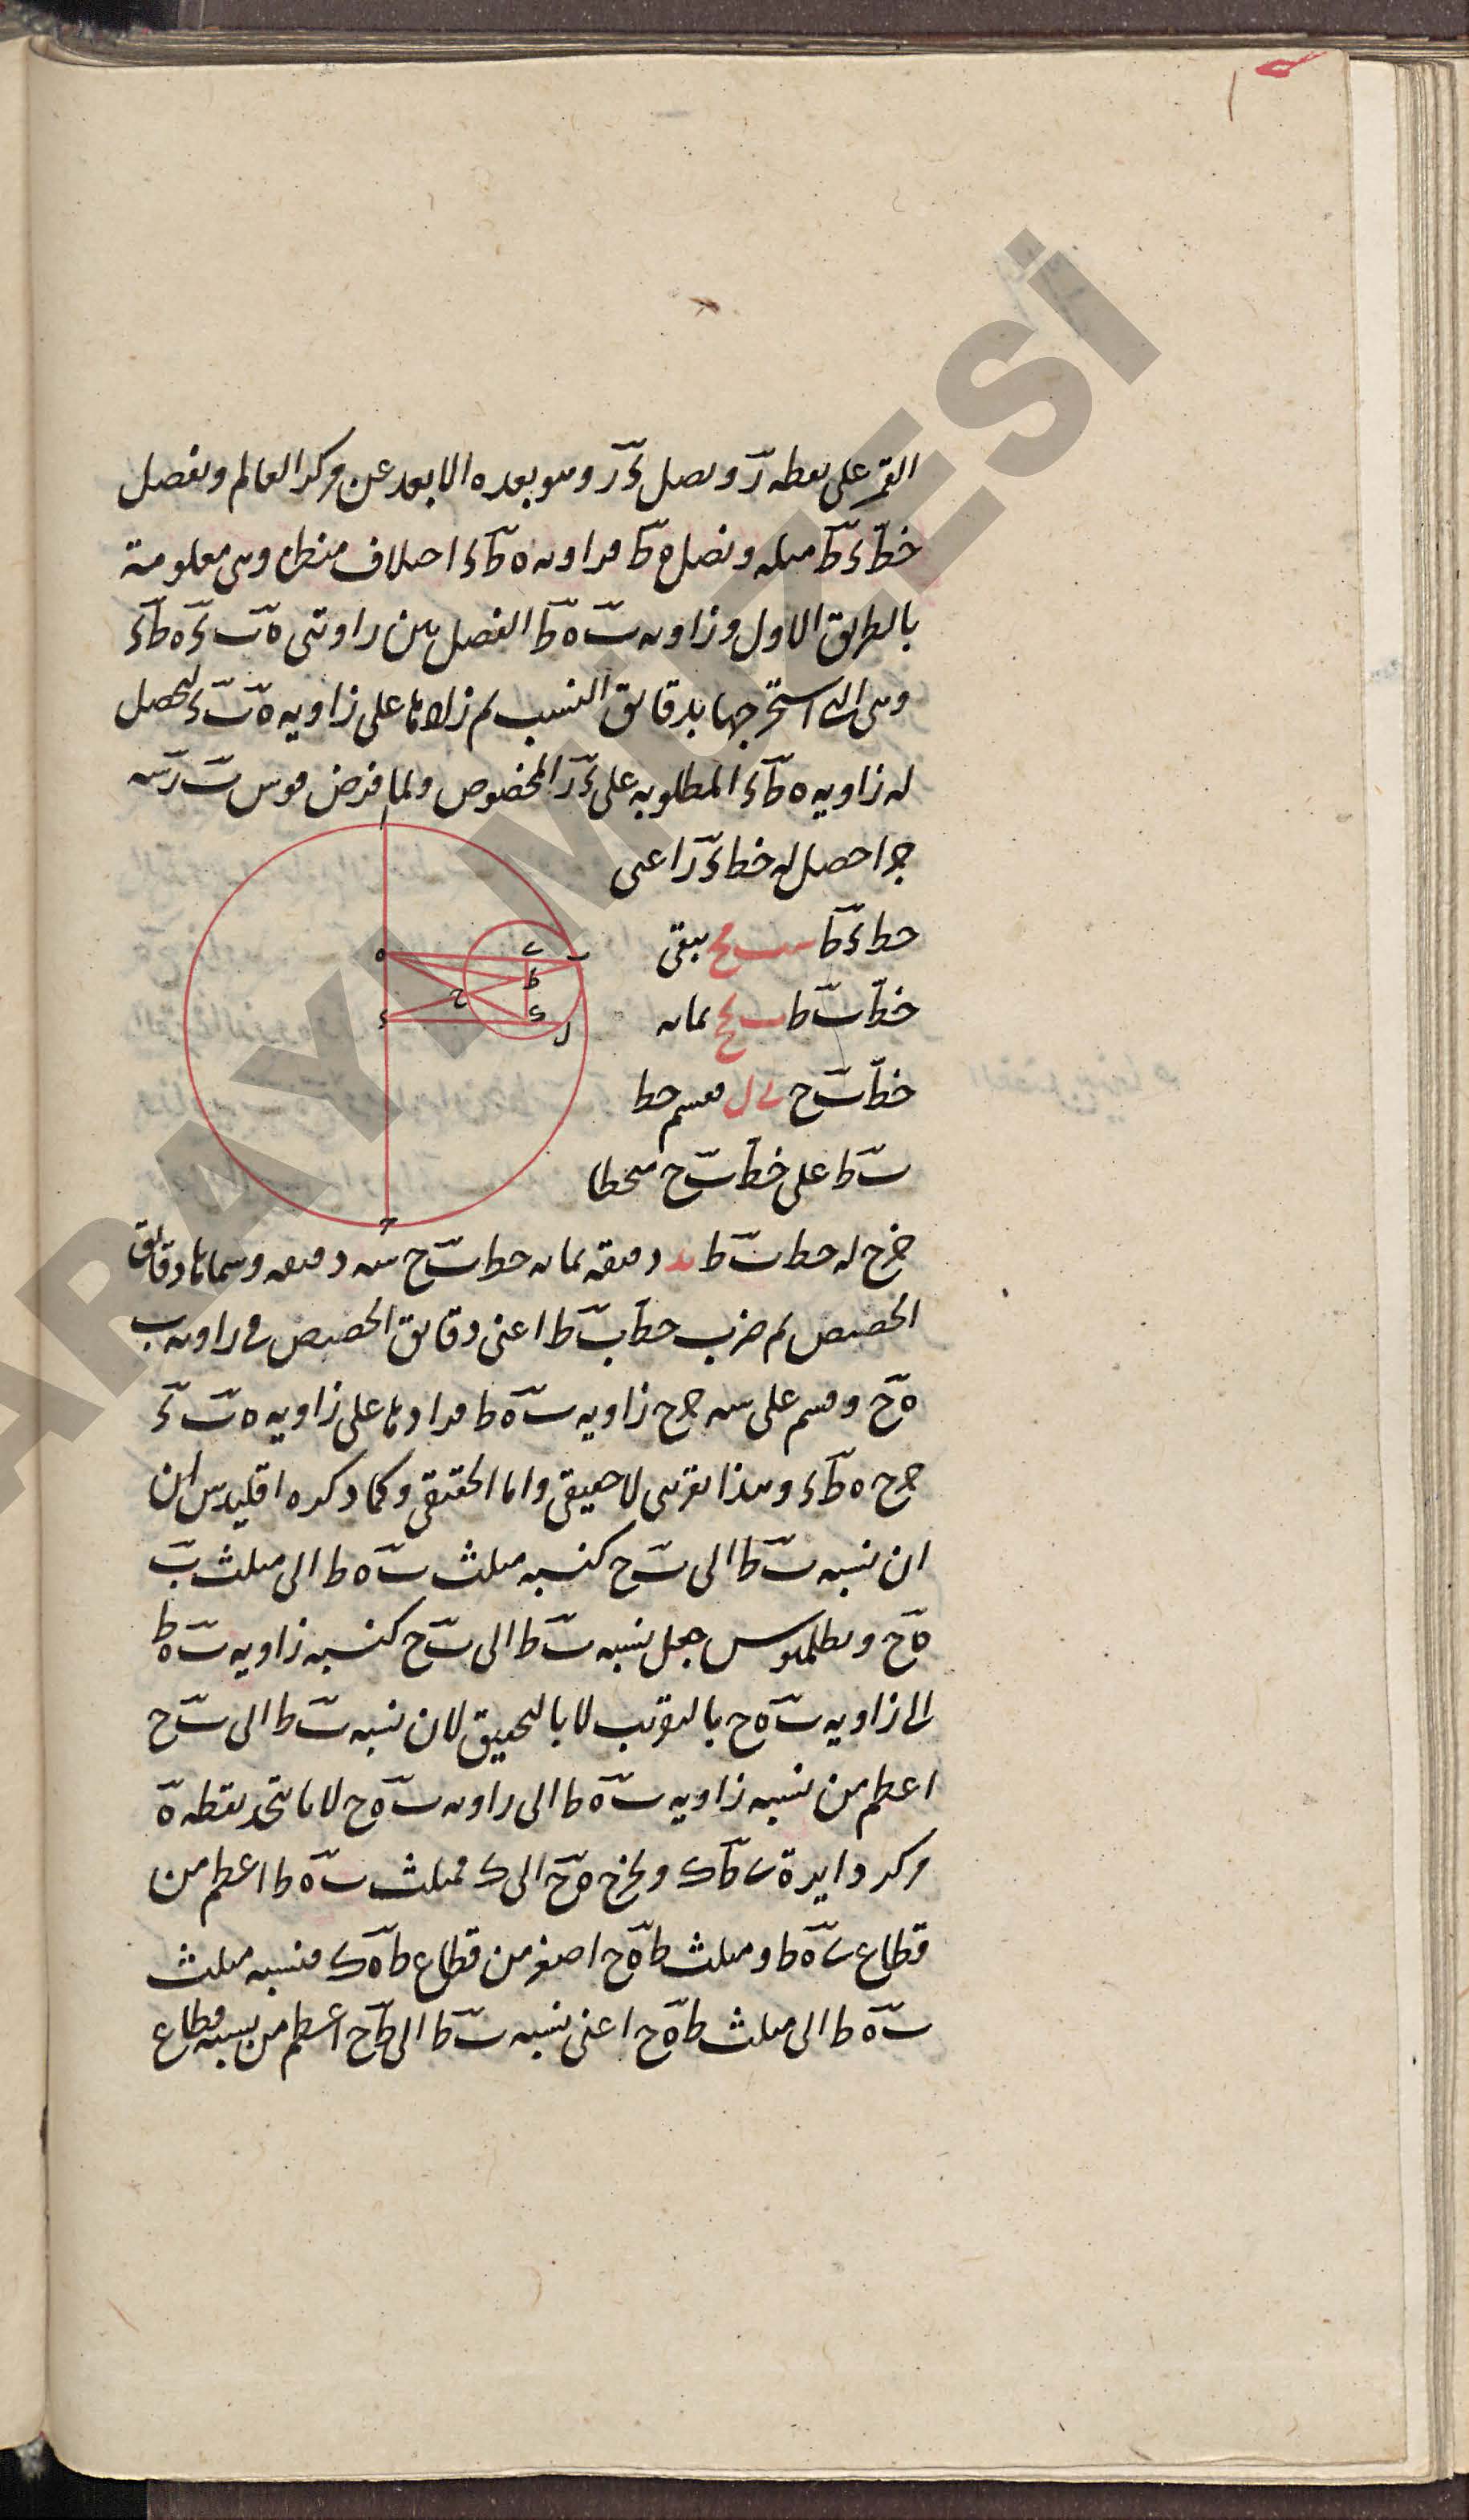 القمر على نقطه ر ونصل ءر وهو بعده الابعد عن مركز العالم ونفصل
خط ءط مثله ونصل ه ط فزاويه ه ط ء اختلاف منظره وهى معلومة
بالطريق الاول وزاويه ب ه ط الفضل بين زاويتى ه ب ء ه ط ء
وهى التى استخرجها بدقايق النسب ثم زادها على زاويه ه ب ء ليحصل
له زاويه ه ط ء المطلوبه على ء ر المخصوص ولما فرض قوس ب ر سه
جزا حصل له خط ء ر اعنى
خط ء ط سب مح يبقى
خط ب ط ب لح بمابه
خط ب ح ى ل فقسم خط
ب ط على خط ب ح منحطا
خرج له خط ب ط يد دقيقه بمابه خط ب ح سه دقيقه وسماها دقايق
الحصص ثم ضرب خط ب ط اعنى دقايق الحصص فى زاويه ب
ه ح وقسم على سه خرج زاويه ب ه ط فزادها على زاويه ه ب ء
خرج ه ط ء وهذا تقريبى لا حقيقى واما الحقيقى وكما ذكره اقليدس
ان نسبه ب ط الى ب ح كنسبه مثلث ب ه ط الى مثلث ب
ه ح وبطلميوس جعل نسبه ب ط الى ب ح كنسبه زاويه ب ه ط
الى زاويه ب ه ح بالتقريب لا بالتحقيق لان نسبه ب ط الى ب ح
اعظم من نسبه زاويه ب ه ط الى زاويه ب ه ح لانا نتخذ نقطه ه
مركز دايرة ى ط ك ونخرج ه ح الى ك فمثلث ب ه ط اعظم من
قطاع ى ه ط ومثلث ط ه ح اصغر من قطاع ط ه ك فنسبه مثلث
ب ه ط الى مثلث ط ه ح اعنى نسبه ب ط الى ط ح اعظم من نسبه قطاع
ARAYI MÜZESİ